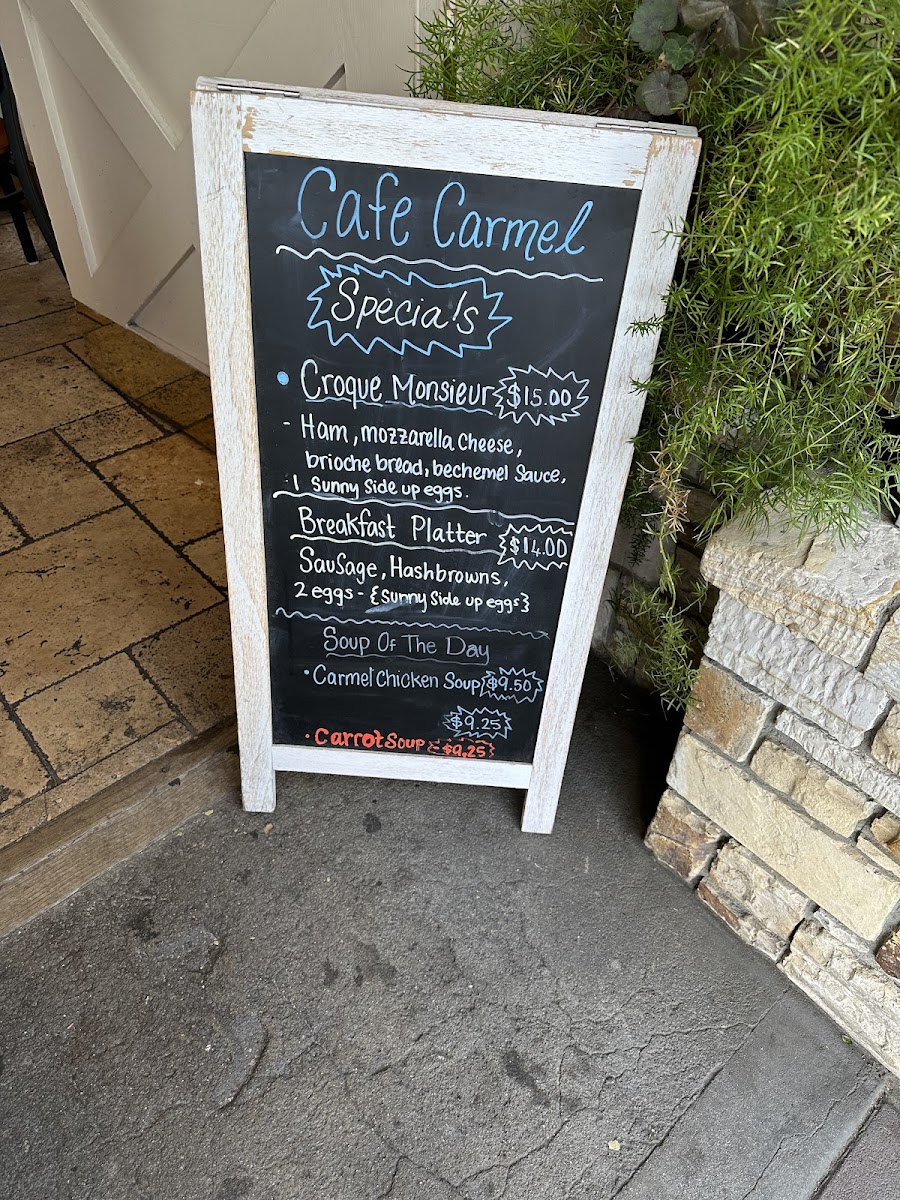 Cafe Carmel
Specials
• Croque Monsieur $15.00
- Ham, mozzarella cheese,
brioche bread, bechemel Sauce,
1 Sunny Side up eggs.
Breakfast Platter $14.00
Sausage, Hashbrowns,
2 eggs - {Sunny Side up eggs}
Soup Of The Day
• Carmel Chicken Soup $9.50
$9.25
• Carrot Soup $9.25